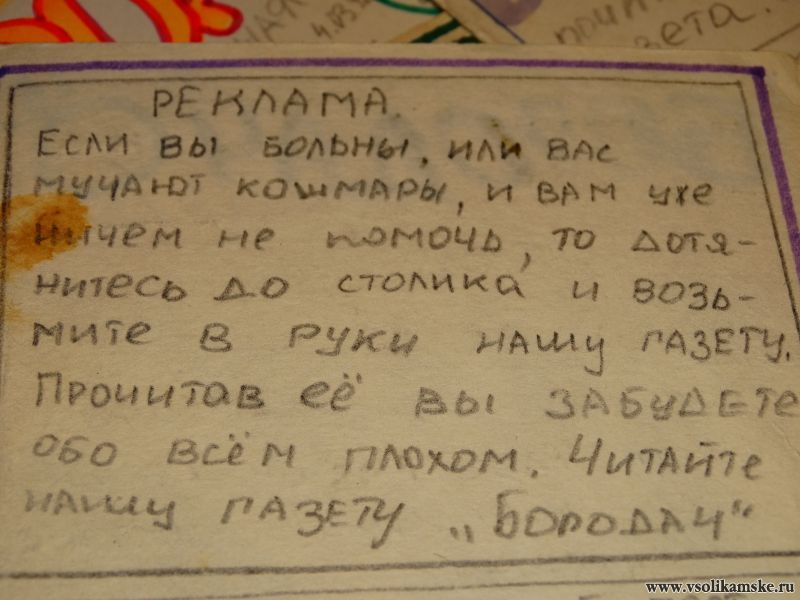 4.03
почи
зета.
РЕКЛАМА.
Если вы больны, или вас
мучают кошмары, и вам уже
ничем не помочь, то дотя-
нитесь до столика и возь-
мите в руки нашу газету.
Прочитав её вы забудете
обо всём плохом. Читайте
нашу газету „Бородач"
www.vsolikamske.ru